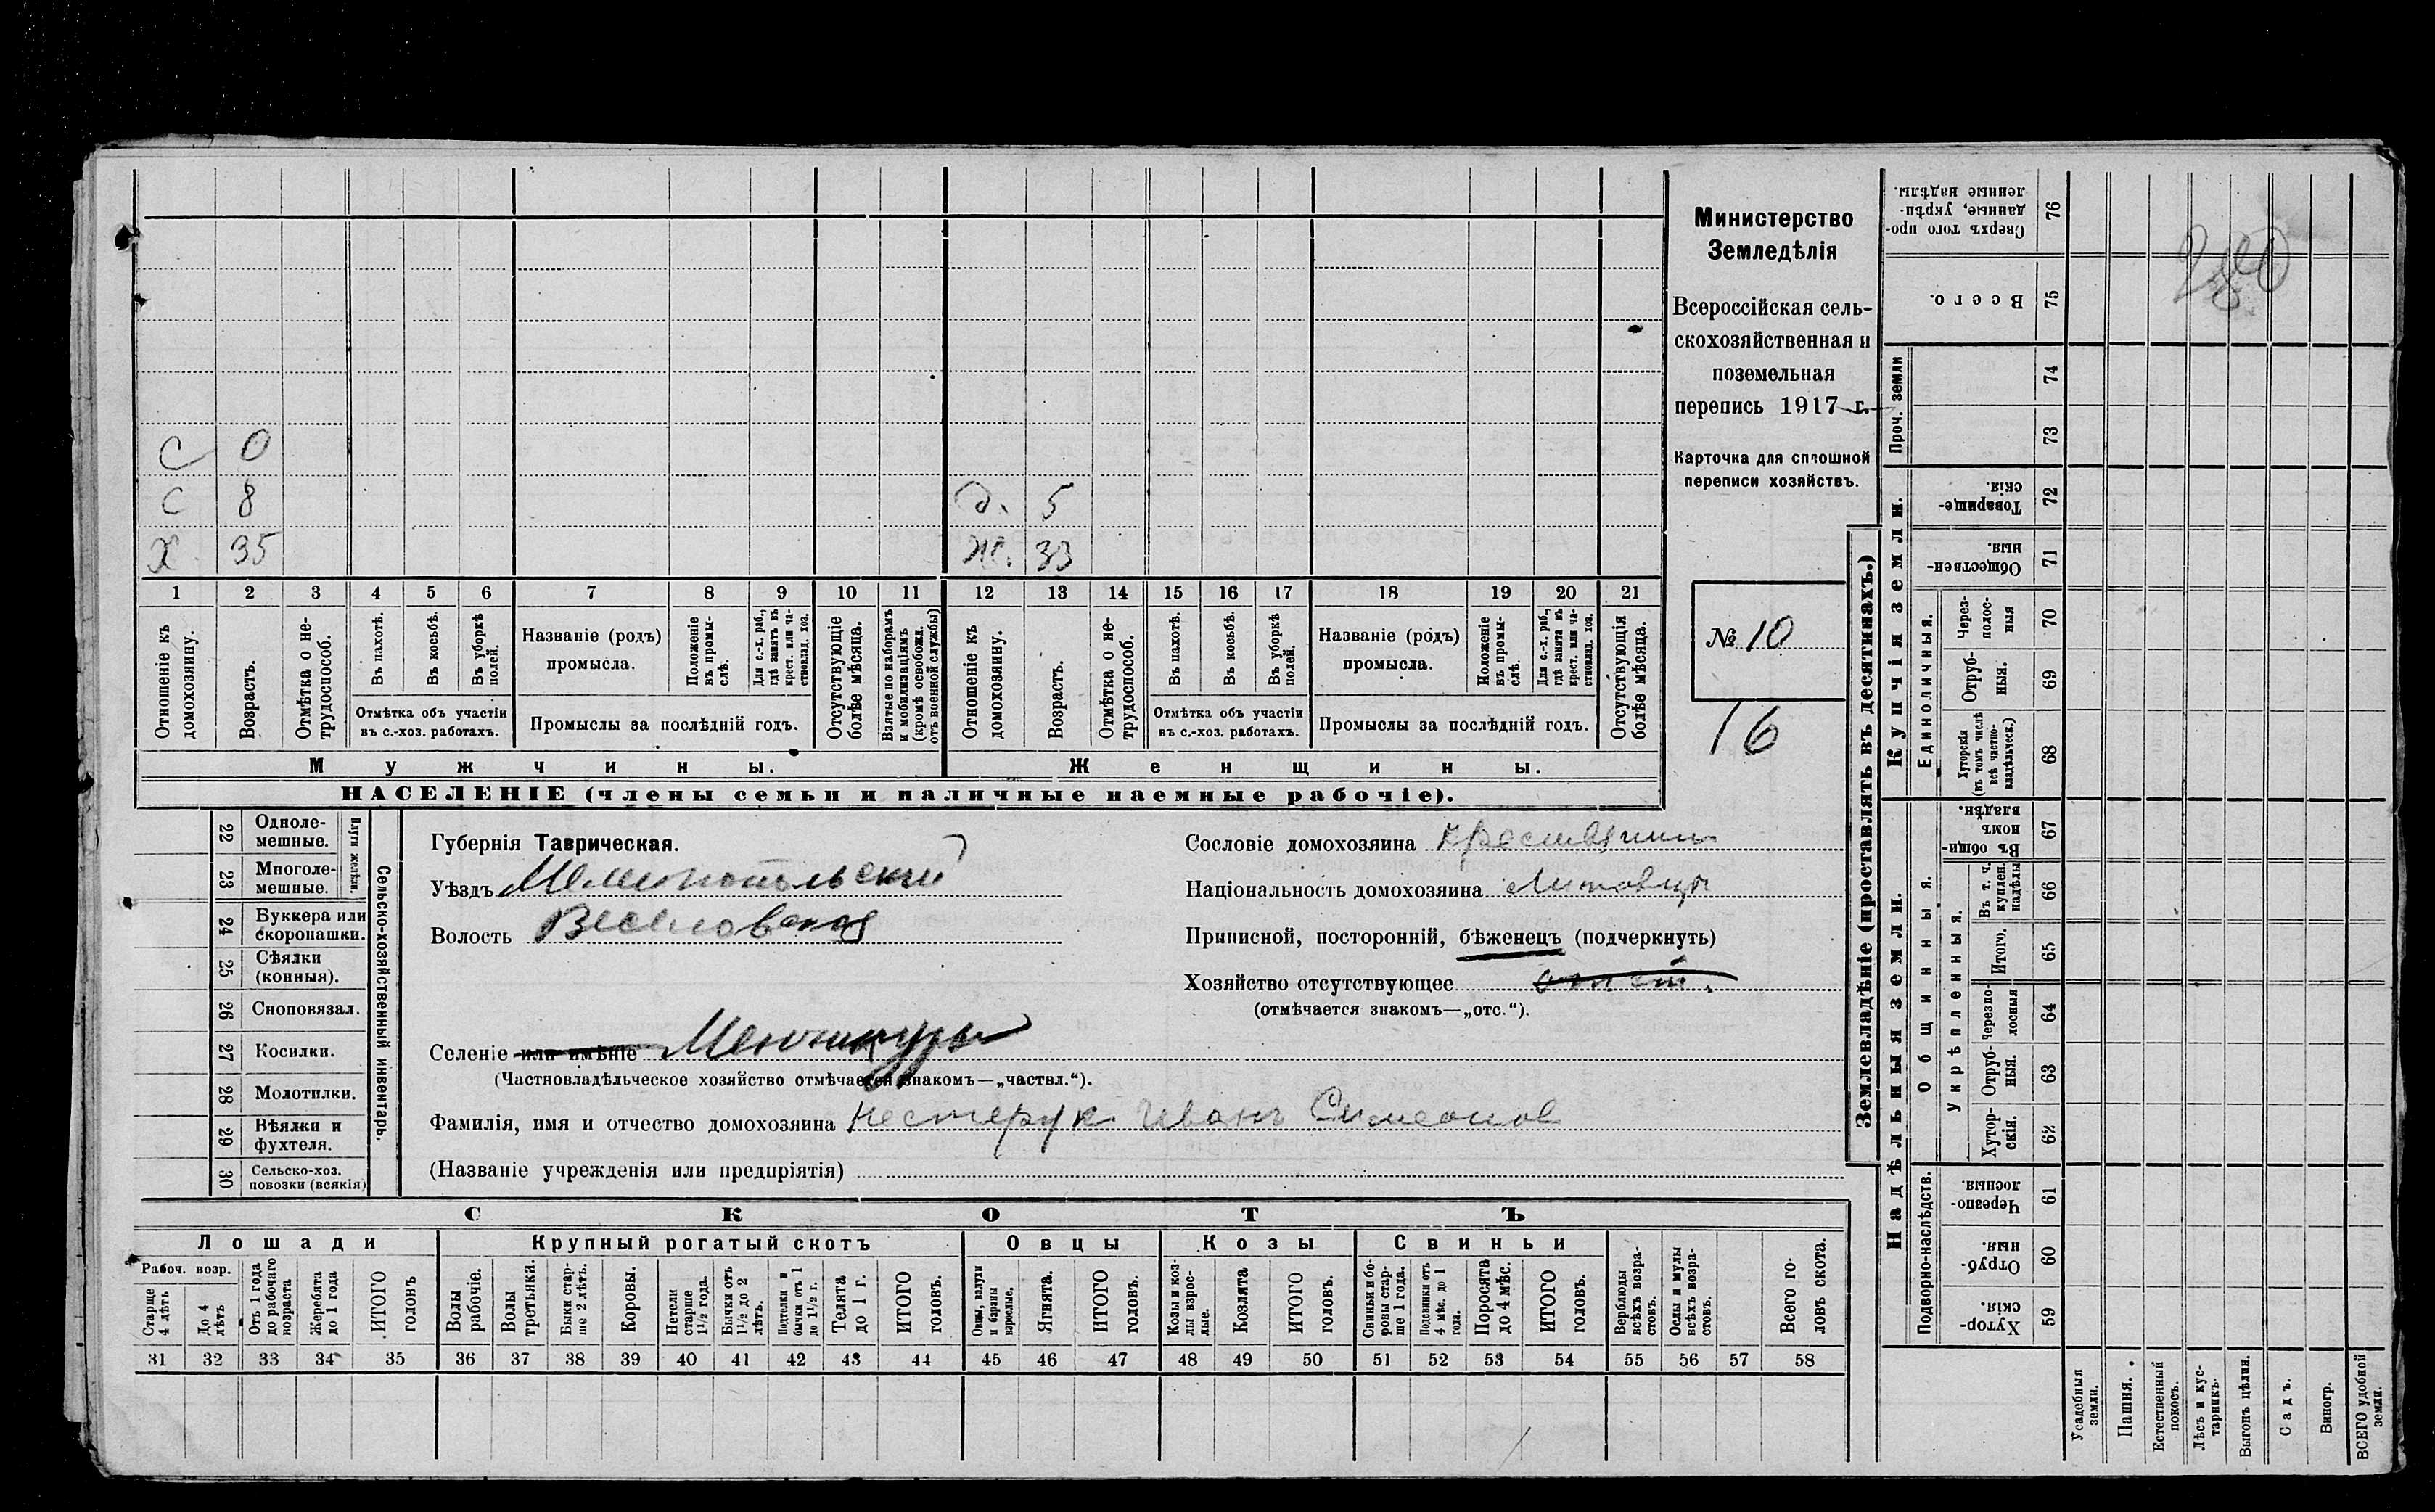 Министерство
Земледѣлія
Всероссійская сель-
скохозяйственная и
поземельная
перепись 1917 г.
Карточка для сплошной
переписи хозяйствъ.
№ 10
16
С 0
С 8 д. 5
Х 35 Ж. 33
1 2 3 4 5 6 7 8 9 10 11 12 13 14 15 16 17 18 19 20 21
Отношеніе къ домохозяину.
Возрастъ.
Отмѣтка о не-трудоспособ.
Въ пахотѣ.
Въ косьбѣ.
Въ уборкѣ полей.
Отмѣтка объ участіи въ с.-хоз. работахъ.
Названіе (родъ) промысла.
Положеніе въ промы-слѣ.
Для с.-х. раб., гдѣ занятъ въ крест. или ча-стновлад. хоз.
Промыслы за послѣдній годъ.
Отсутствующіе болѣе мѣсяца.
Взятые по наборамъ и мобилизаціямъ (кромѣ освобожд. отъ военной службы)
Отношеніе къ домохозяину.
Возрастъ.
Отмѣтка о не-трудоспособ.
Въ пахотѣ.
Въ косьбѣ.
Въ уборкѣ полей.
Отмѣтка объ участіи въ с.-хоз. работахъ.
Названіе (родъ) промысла.
Положеніе въ промы-слѣ.
Для с.-х. раб., гдѣ занята въ крест. или ча-стновлад. хоз.
Промыслы за послѣдній годъ.
Отсутствующія болѣе мѣсяца.
Мужчины. Женщины.
НАСЕЛЕНІЕ (члены семьи и наличные наемные рабочіе).
Сельско-хозяйственный инвентарь.
Плуги желѣзн.
22 Одноле-мешные.
23 Многоле-мешные.
24 Буккера или скоропашки.
25 Сѣялки (конныя).
26 Сноповязал.
27 Косилки.
28 Молотилки.
29 Вѣялки и фухтеля.
30 Сельско-хоз. повозки (всякія)
Губернія Таврическая.
Уѣздъ Мелитопольский
Волость Веселовская
Селеніе или имѣніе Менчикуры
(Частновладѣльческое хозяйство отмѣчается знакомъ—„частвл.“).
Фамилія, имя и отчество домохозяина Нестерук Иванъ Симеонов
(Названіе учрежденія или предпріятія)
Сословіе домохозяина крестьянин
Національность домохозяина Литовцы
Приписной, посторонній, бѣженецъ (подчеркнуть)
Хозяйство отсутствующее
(отмѣчается знакомъ—„отс.“).
СКОТЪ
Лошади Крупный рогатый скотъ Овцы Козы Свиньи
Рабоч. возр.
Старше 4 лѣтъ
До 4 лѣтъ
Отъ 1 года до рабочаго возраста
Жеребята до 1 года
ИТОГО головъ
Волы рабочіе.
Волы третьяки.
Быки стар-ше 2 лѣтъ.
Коровы.
Нетели старше 1½ года.
Бычки отъ 1½ до 2 лѣтъ.
Телки и бычки отъ 1 до 1½ г.
Телята до 1 г.
ИТОГО головъ.
Овцы, валухи и бараны взрослые.
Ягнята.
ИТОГО головъ.
Козы и коз-лы взрос-лые.
Козлята
ИТОГО головъ.
Свиньи и бо-ровы стар-ше 1 года.
Подсвинки отъ 4 мѣс. до 1 года.
Поросята до 4 мѣс.
ИТОГО головъ.
Верблюды всѣхъ возра-стовъ.
Ослы и мулы всѣхъ возра-стовъ.
Всего го-ловъ скота.
31 32 33 34 35 36 37 38 39 40 41 42 43 44 45 46 47 48 49 50 51 52 53 54 55 56 57 58
Землевладѣніе (проставлять въ десятинахъ.)
Надѣльныя земли. Купчія земли. Проч. земли
Подворно-наслѣдств.
Общинныя.
Укрѣпленныя.
Единоличныя.
76 Сверхъ того про-данные, укрѣп-ленные надѣлы.
75 Всего.
74
73
72 Товарище-скія.
71 Обществен-ныя.
70 Через-полос-ныя
69 Отруб-ныя.
68 Хуторскія (въ томъ числѣ всѣ частно-владѣльческ.)
67 Въ общи-номъ владѣн.
66 Въ т. ч. куплен. надѣлы
65 Итого.
64 Черезпо-лосныя
63 Отруб-ныя.
62 Хутор-скія.
61 Черезпо-лосныя.
60 Отруб-ныя.
59 Хутор-скія.
Усадебныя земли.
Пашня.
Естественный покосъ.
Лѣсъ и кус-тарникъ.
Выгонъ цѣлин.
Садъ.
Виногр.
ВСЕГО удобной земли.